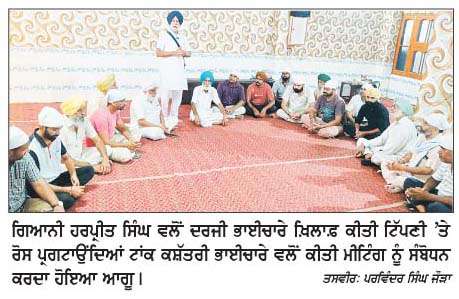 ਗਿਆਨੀ ਹਰਪ੍ਰੀਤ ਸਿੰਘ ਵਲੋਂ ਦਰਜ਼ੀ ਭਾਈਚਾਰੇ ਖ਼ਿਲਾਫ਼ ਕੀਤੀ ਟਿੱਪਣੀ 'ਤੇ
ਰੋਸ ਪ੍ਰਗਟਾਉਂਦਿਆਂ ਟਾਂਕ ਕਸ਼ੱਤਰੀ ਭਾਈਚਾਰੇ ਵਲੋਂ ਕੀਤੀ ਮੀਟਿੰਗ ਨੂੰ ਸੰਬੋਧਨ
ਕਰਦਾ ਹੋਇਆ ਆਗੂ।
ਤਸਵੀਰ: ਪਰਵਿੰਦਰ ਸਿੰਘ ਜੌੜਾ